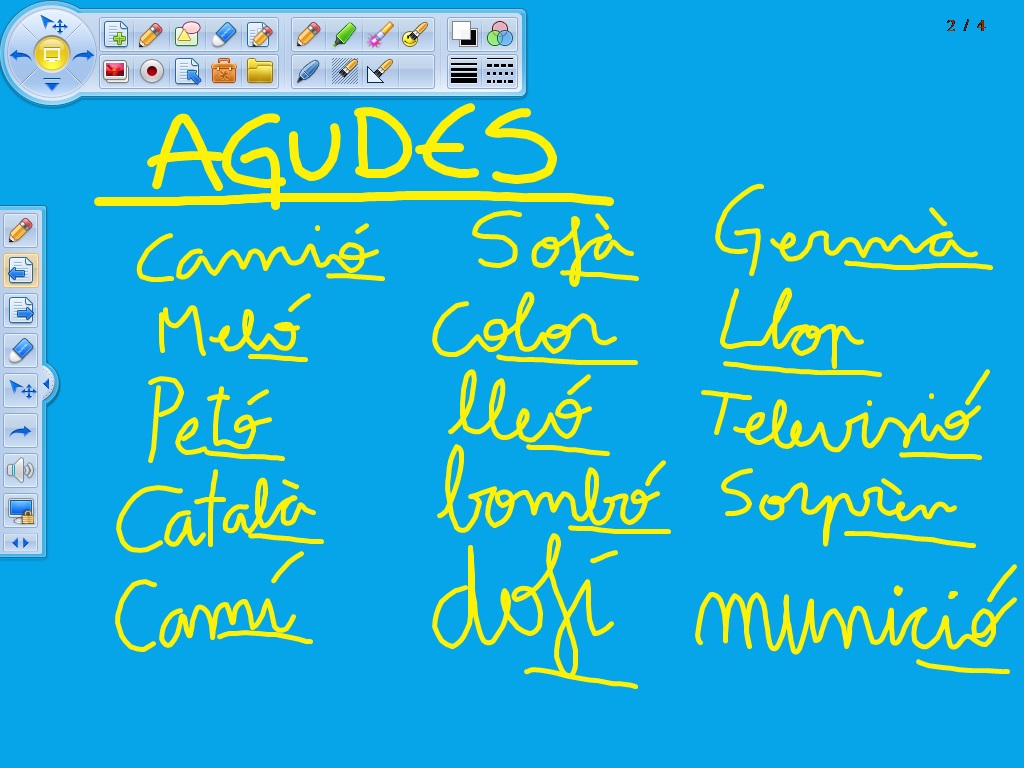 2 / 4
AGUDES
Camió Sofà Germà
Meló Color Llop
Petó lleó Televisió
Català bombó Sorprèn
Camí dofí munició